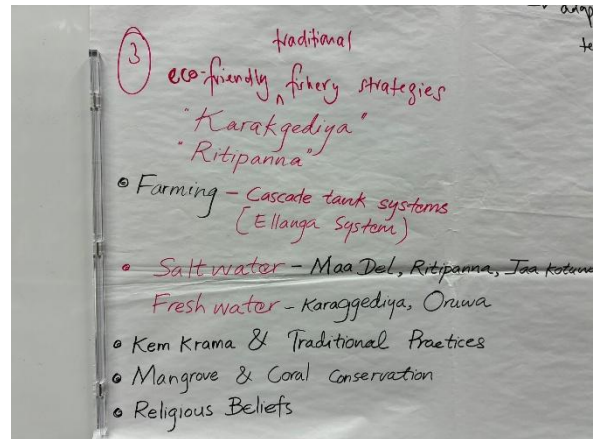 3
traditional
eco-friendly ^ fishery strategies
"Karakgediya"
"Ritipanna"
• Farming – Cascade tank systems
(Ellanga System)
• Salt water – Maa Del, Ritipanna, Jaa
Fresh water – Karaggediya, Oruwa
• Kem Krama & Traditional Practices
• Mangrove & Coral Conservation
• Religious Beliefs